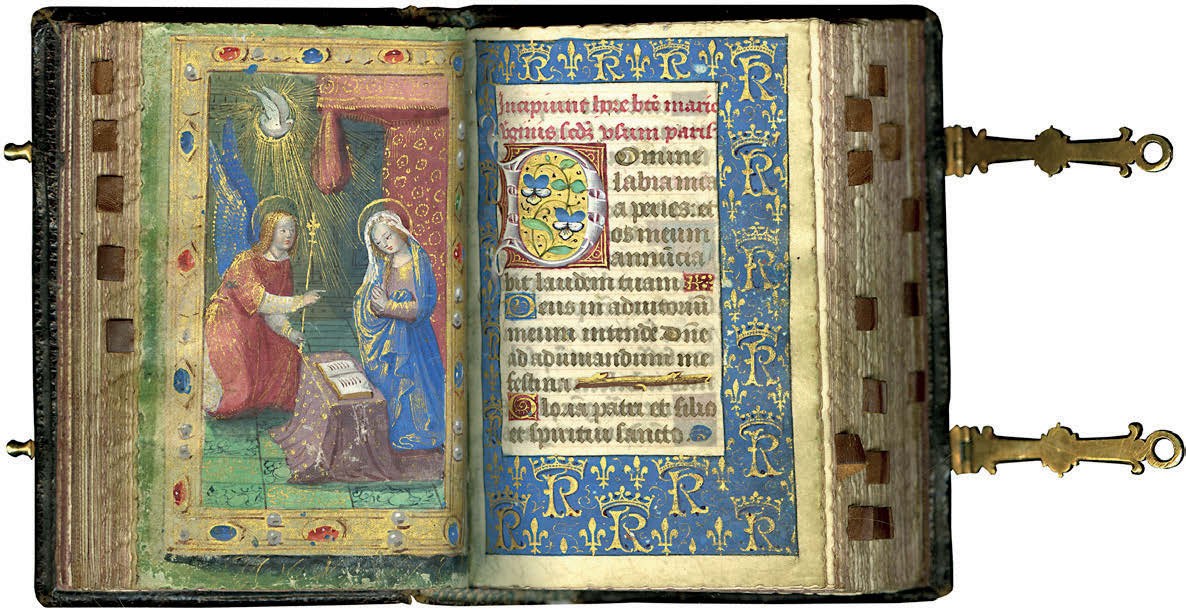 Incipiunt hore bt̃e marie
v̓ginis scd̃ʒ vsum paris̓
Domine
labia mea
aperies: et
os meum
annũcia
bit laudem tuam
Deus in adiutoriũ
meum intende Dñe
ad adiuuandum me
festina
Gloria patri et filio
et spiritui sancto